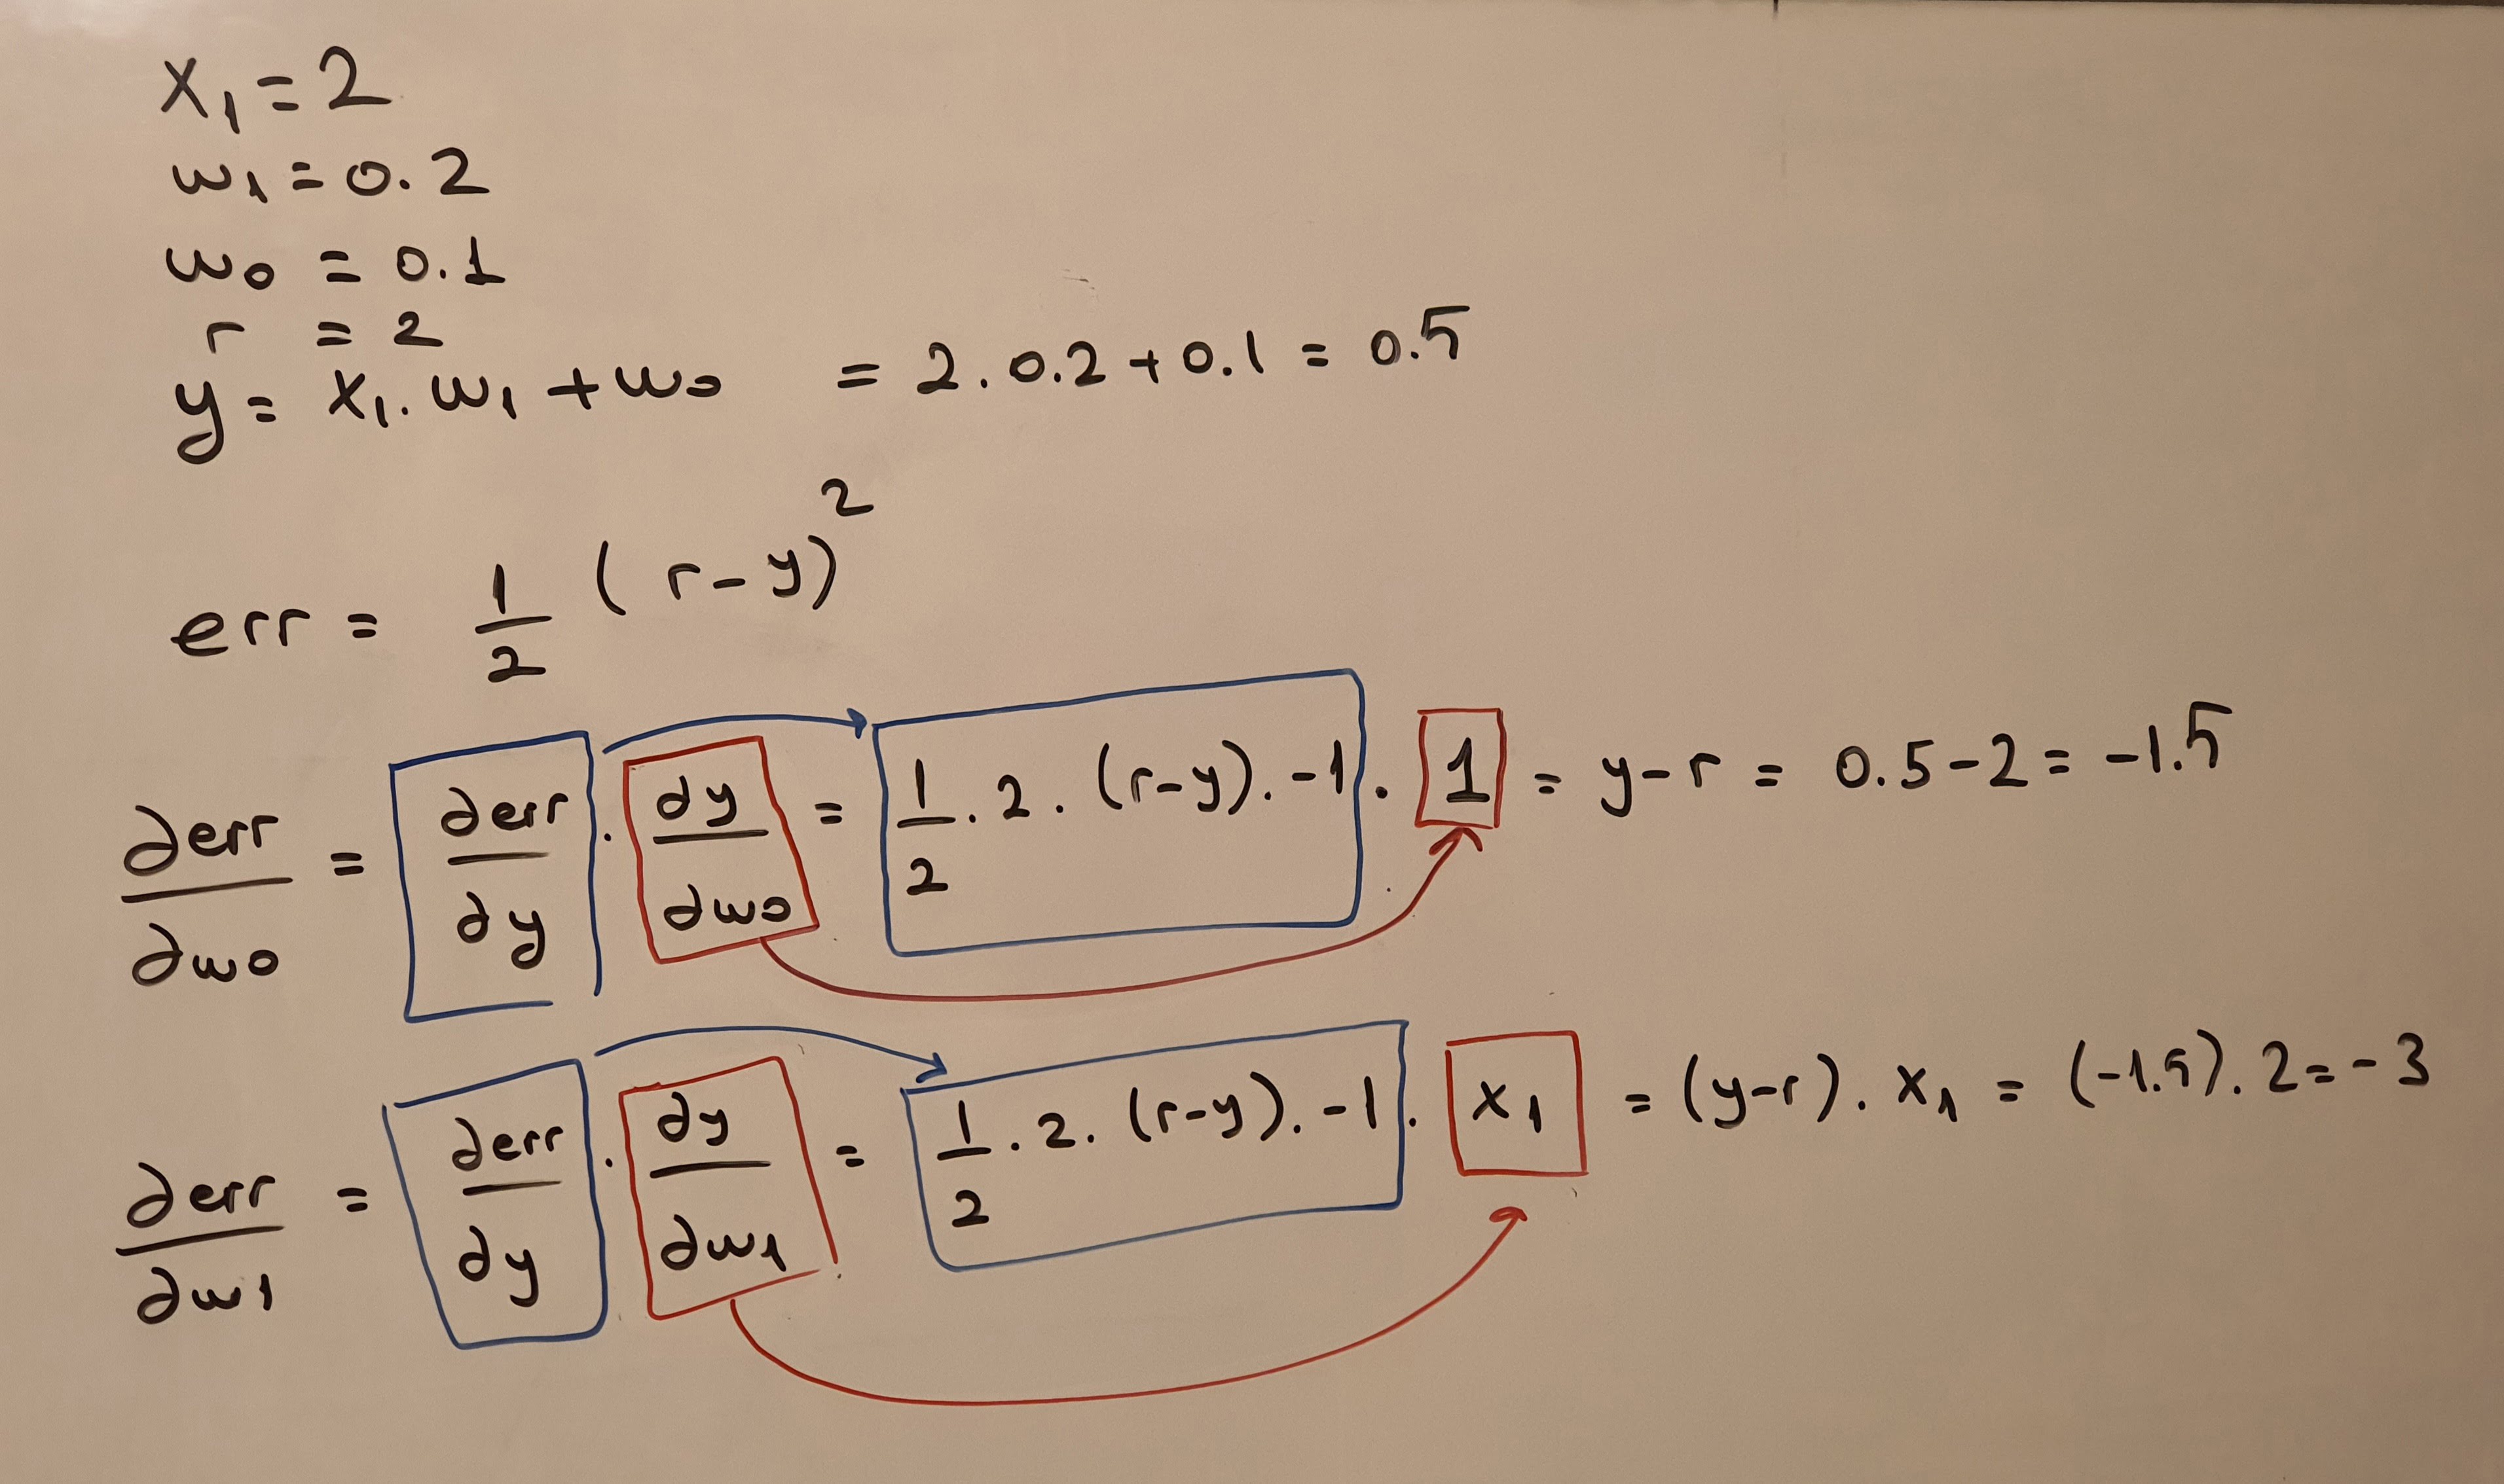 x₁ = 2
w₁ = 0.2
w₀ = 0.1
r = 2
y = x₁ . w₁ + w₀ = 2 . 0.2 + 0.1 = 0.5
err = 1/2 (r - y)²
∂err/∂w₀ = ∂err/∂y . ∂y/∂w₀ = 1/2 . 2 . (r-y) . -1 . 1 = y - r = 0.5 - 2 = -1.5
∂err/∂w₁ = ∂err/∂y . ∂y/∂w₁ = 1/2 . 2 . (r-y) . -1 . x₁ = (y-r) . x₁ = (-1.5) . 2 = -3